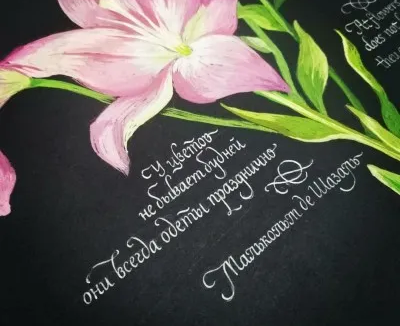 У цветов
не бывает будней
они всегда одеты празднично
Малькольм де Шазаль
A flower
does not
they